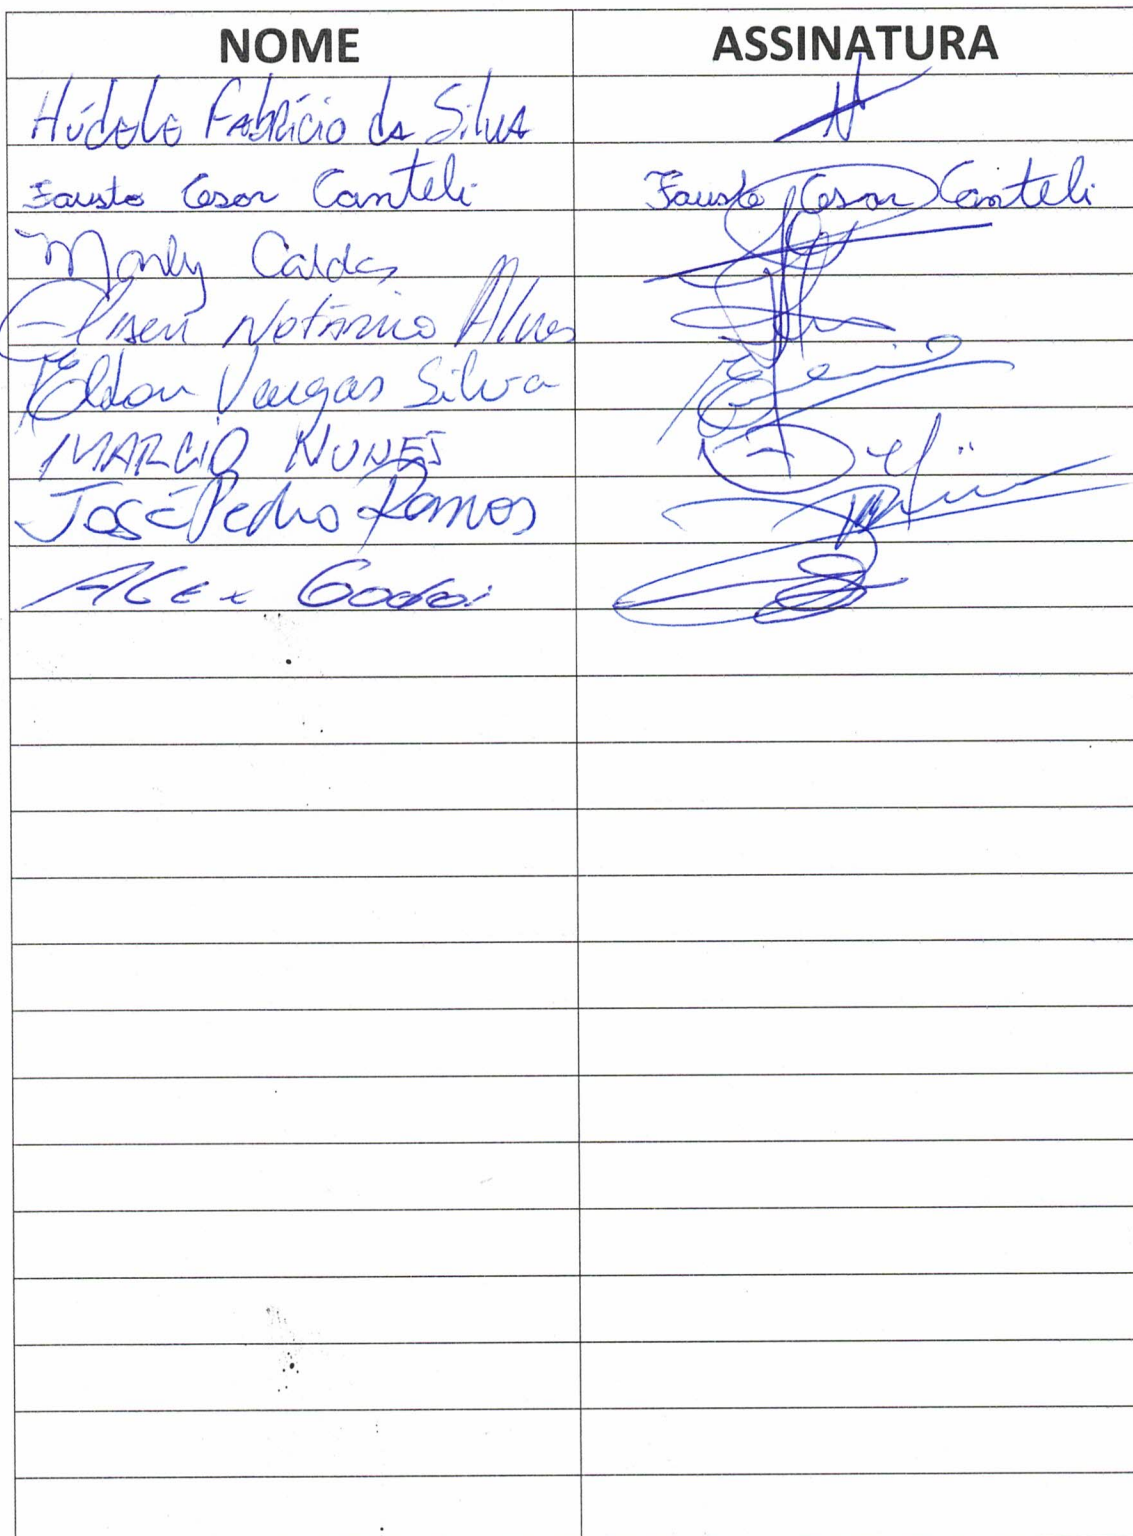 NOME ASSINATURA
Fabrício da Silva
Fausto Cesar Canteli Fausto Cesar Canteli
Marly Caldas
Eliseu Notário Alves
Eldon Vargas Silva
MARCIO NUNES
José Pedro Ramos
ALEX Godoi